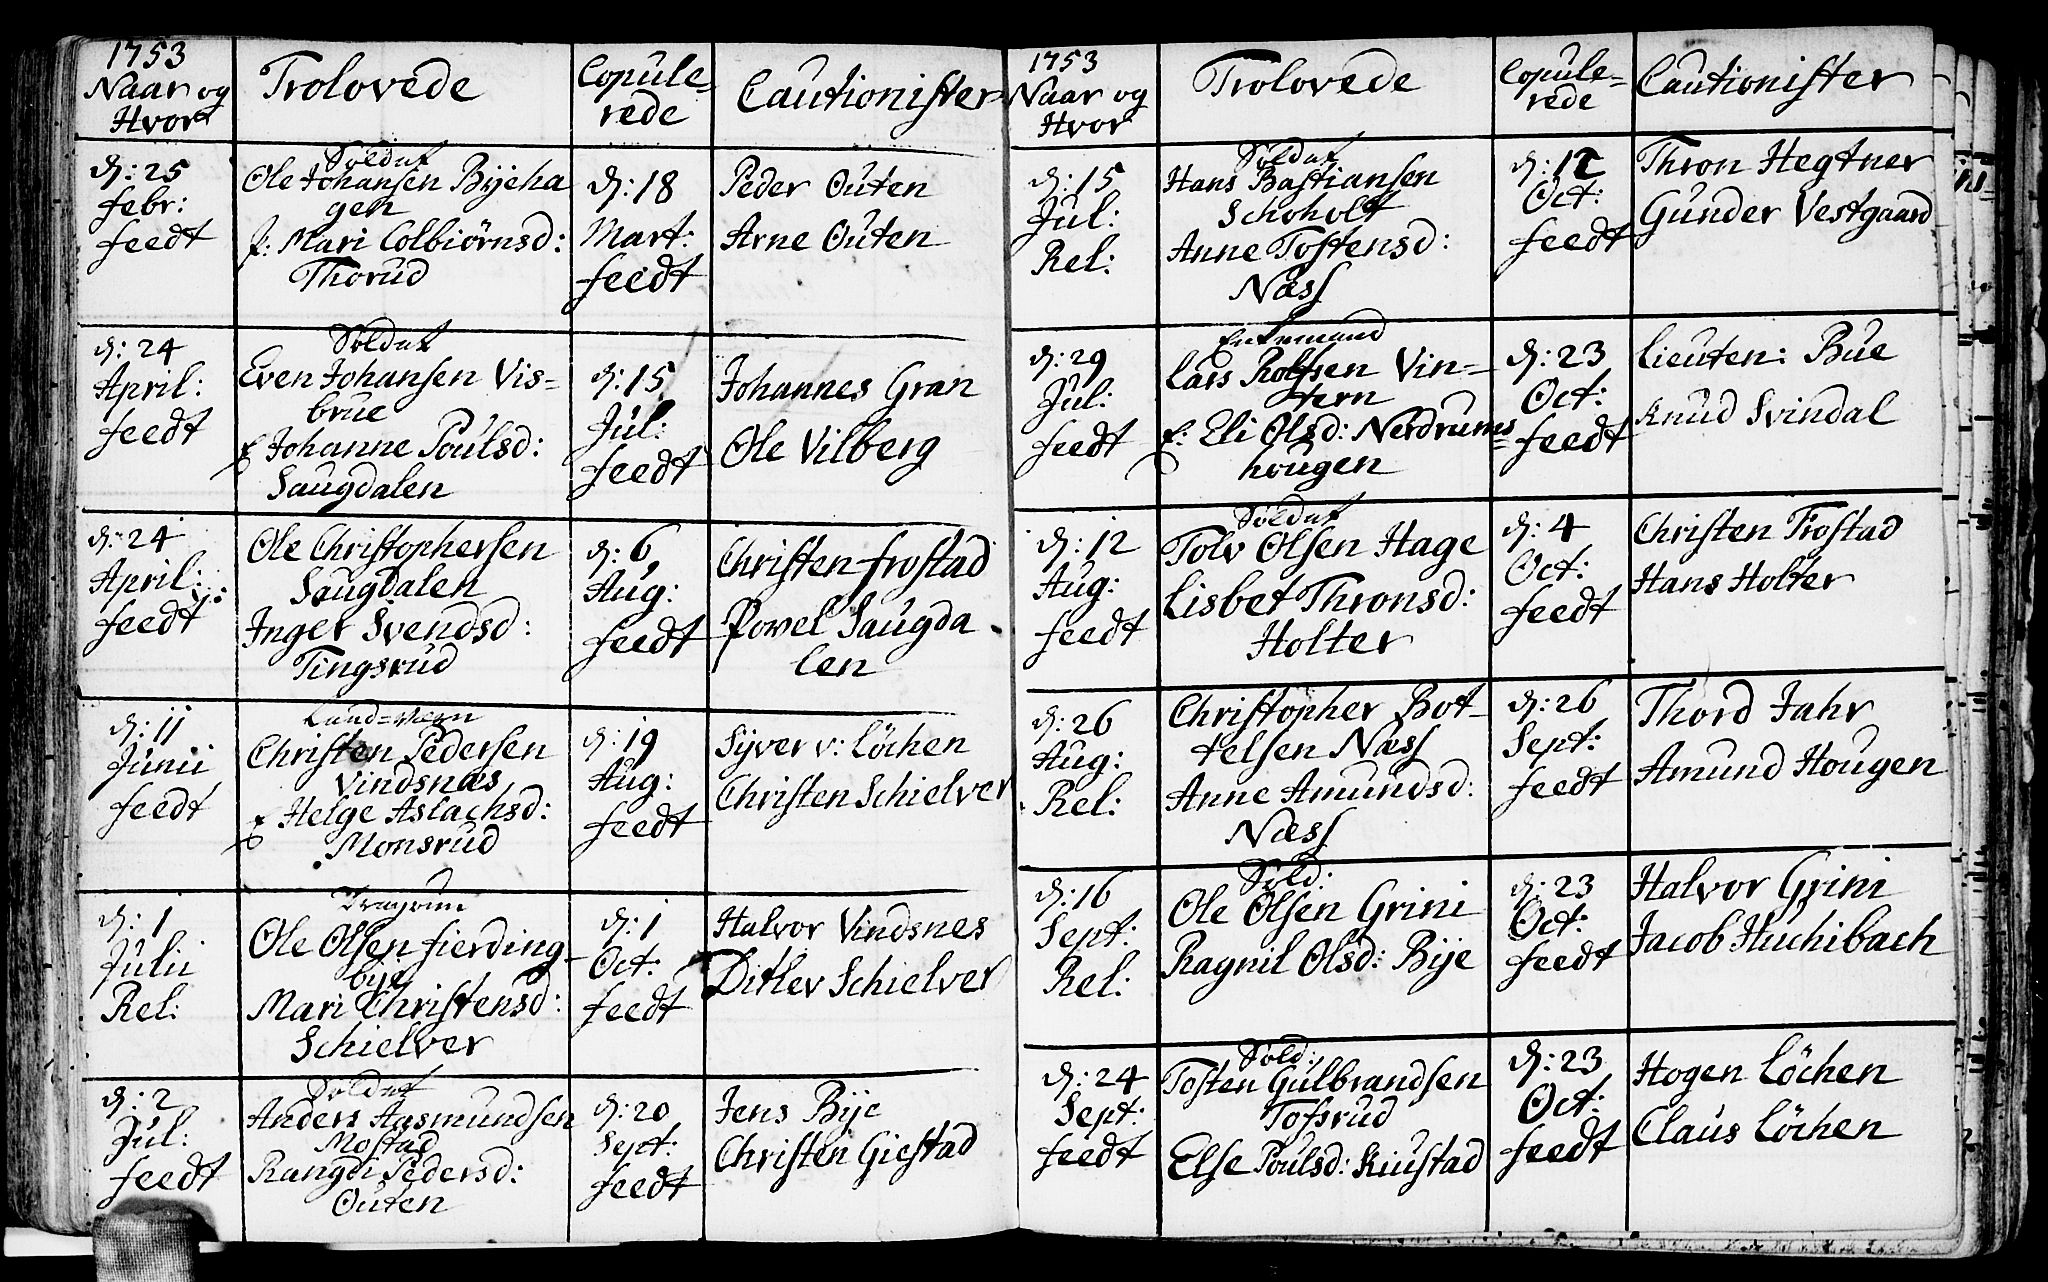 1753
Naar og
Hvor
Trolovede
Copule=
rede
Cautionister
d: 25
Febr:
feedt
Soldat
Ole Johansen Byeha
gen
f: Mari Colbiörnsd:
Thorud
d: 18
Mart:
feedt
Peder Outen
Arne Outen
d: 24
April:
feedt
Soldat
Even Johansen Vis=
brue
f Johanne Poulsd:
Saugdalen
d: 15
Jul:
feedt
Johannes Gran
Ole Vilberg
d: 24
April:
feedt
Ole Christophersen
Saugdalen
Inger Svendsd:
Tingsrud
d: 6
Aug:
feedt
Christen Frostad
Povel Saugda
len
d: 11
Junii
feedt
Land=Værn
Christen Pedersen
Vindsnæs
f Helge Aslachsd:
Monsrud
d: 19
Aug:
feedt
Syver v: Löchen
Christen Schielver
d: 1
Julii
Rel:
Dragoun
Ole Olsen Fierding
bye
Mari Christensd:
Schielver
d: 1
Oct:
feedt
Halvor Vindsnes
Ditlev Schielver
d: 2
Jul:
feedt
Soldat
Anders Aasmundsen
Mostad
Rangdi Pedersd:
Outen
d: 20
Sept:
feedt
Jens Bye
Christen Giestad
1753
Naar og
Hvor
Trolovede
Copule=
rede
Cautionister
d: 15
Jul:
Rel:
Soldat
Hans Bastiansen
Schoholt
Anne Tostensd:
Næss
d: 12
Oct:
feedt
Thron Hegtner
Gunder Vestgaard
d: 29
Jul:
feedt
Enkemand
Lars Rolfsen Vin=
tern
f: Eli Olsd: Nerdrums=
hougen
d: 23
Oct:
feedt
Lieuten: Bue
Knud Svindal
d: 12
Aug:
feedt
Soldat
Tolv Olsen Hage
Lisbet Thronsd:
Holter
d: 4
Oct:
feedt
Christen Frostad
Hans Holter
d: 26
Aug:
Rel:
Christopher Bot=
telsen Næss
Anne Amundsd:
Næss
d: 26
Sept:
feedt
Thord Jahr
Amund Hougen
d: 16
Sept:
Rel:
Sold:
Ole Olsen Grini
Ragnil Olsd: Bye
d: 23
Oct:
feedt
Halvor Grini
Jacob Huchibach
d: 24
Sept:
feedt
Sold:
Tosten Gulbrandsen
Tofsrud
Else Poulsd: Kiustad
d: 23
Oct:
feedt
Hogen Löchen
Claus Löchen